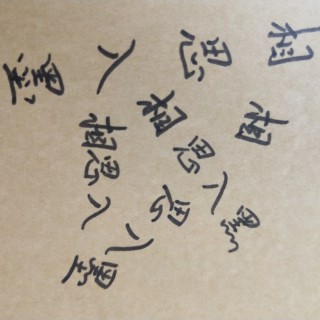 相思入墨
相思入墨
相思入墨
相思入